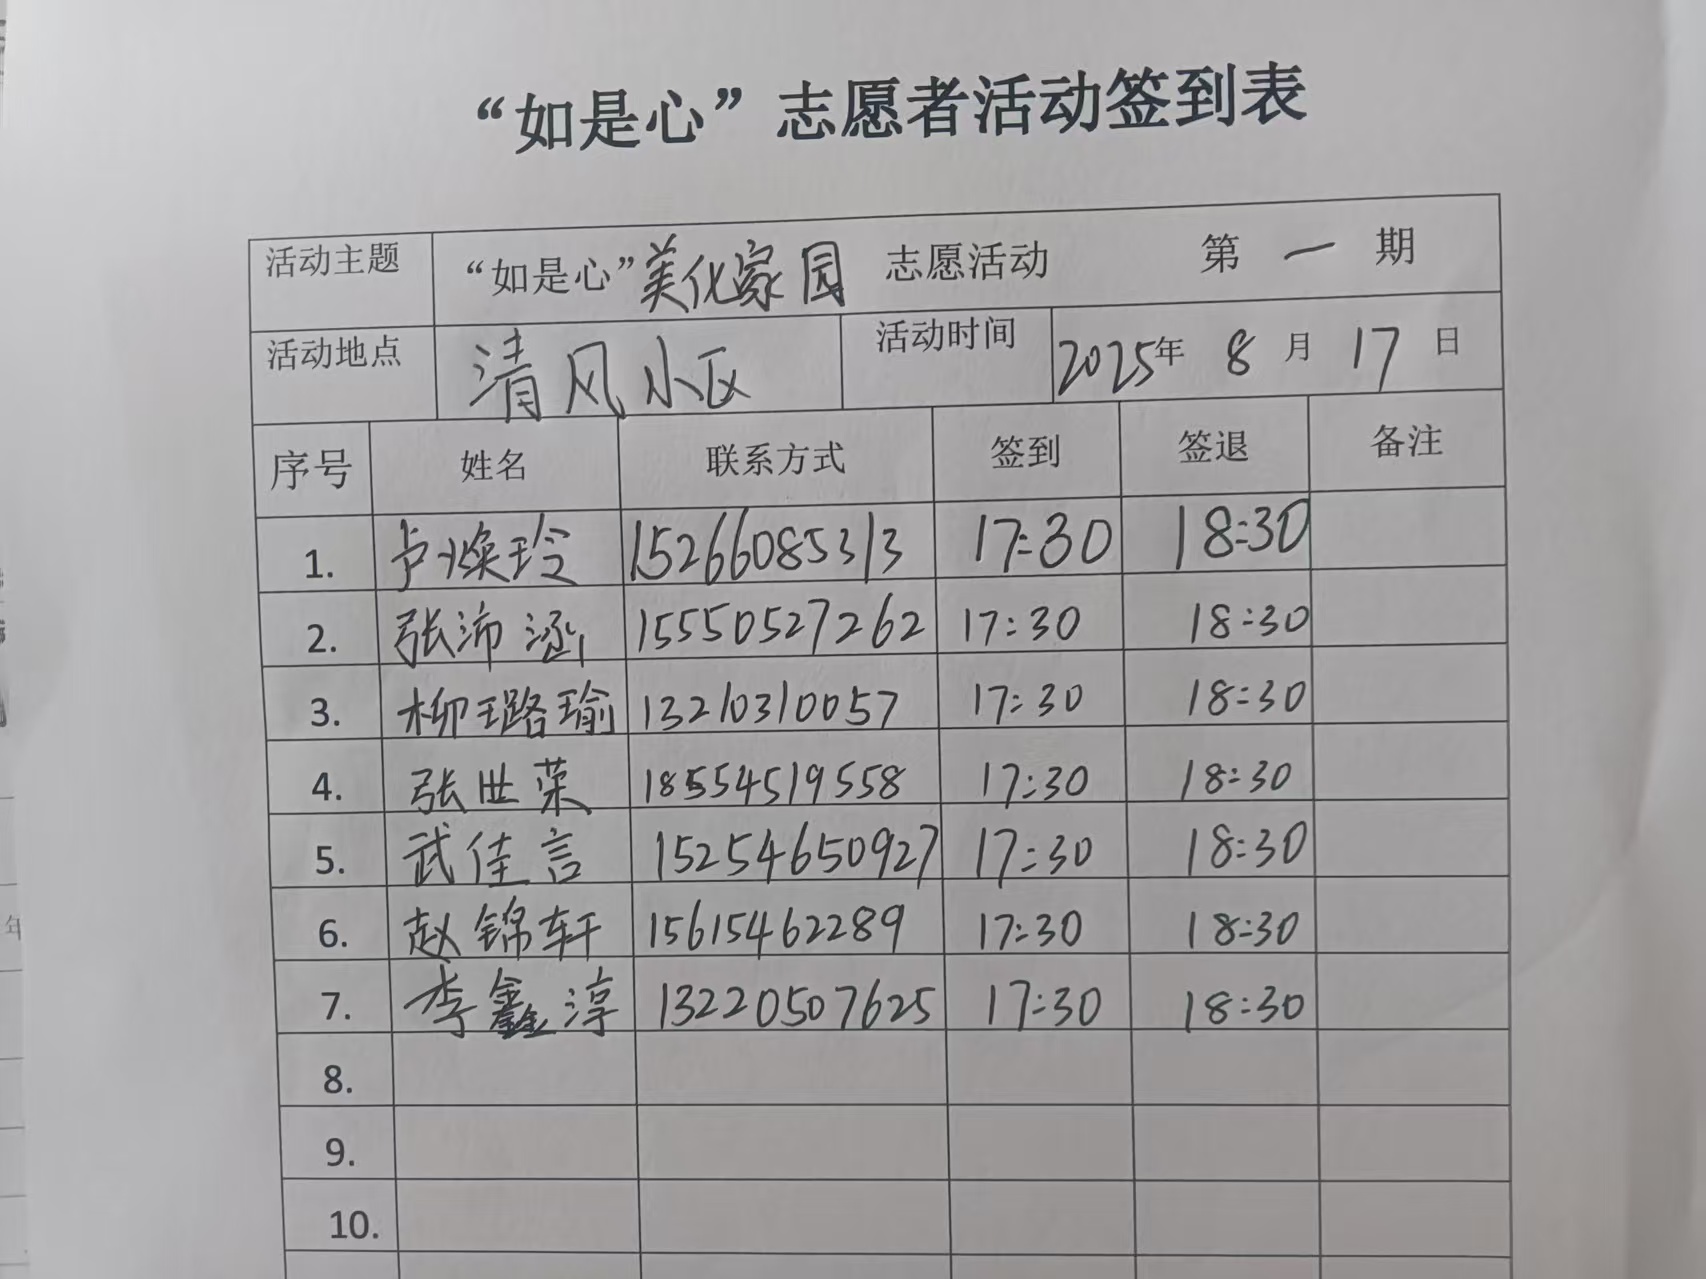 “如是心”志愿者活动签到表
活动主题 “如是心”美化家园 志愿活动 第 一 期
活动地点 清风小区 活动时间 2025年 8 月 17 日
序号 姓名 联系方式 签到 签退 备注
1. 卢焕玲 15266085313 17:30 18:30
2. 张沛涵 15550527262 17:30 18:30
3. 柳璐瑜 13210310057 17:30 18:30
4. 张世荣 18554519558 17:30 18:30
5. 武佳言 15254650927 17:30 18:30
6. 赵锦轩 15615462289 17:30 18:30
7. 李鑫淳 13220507625 17:30 18:30
8.
9.
10.
年